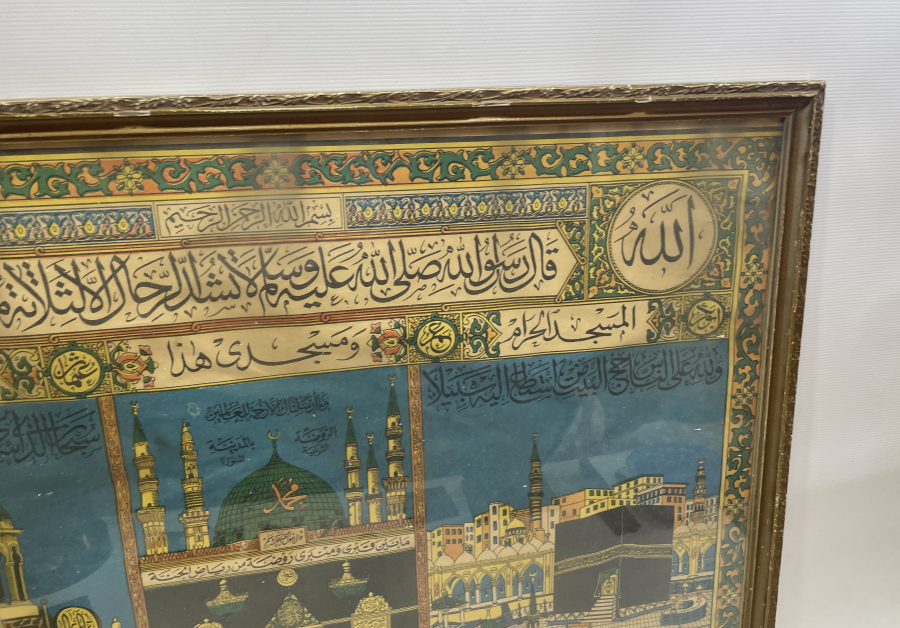 بسم الله الرحمن الرحيم
الله
قال رسول الله صلى الله عليه وسلم لا تشد الرحال إلا لثلاثة
المسجد الحرام
عمر
ومسجدي هذا
عثمان
ولله على الناس حج البيت من استطاع إليه سبيلا
وما أرسلناك إلا رحمة للعالمين
الروضة
الشريفة
بالمدينة
المنورة
محمد
ما بين قبري ومنبري روضة من رياض الجنة